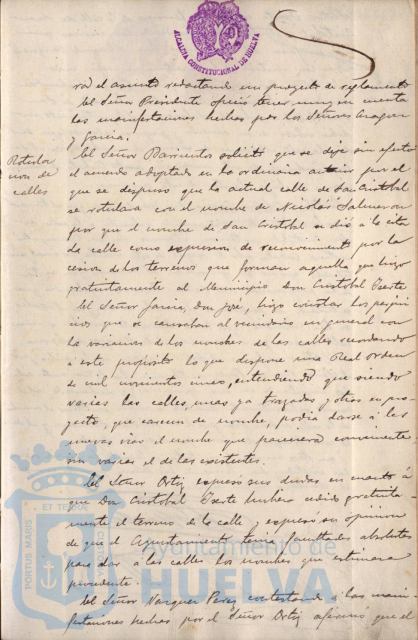 ALCALDIA CONSTITUCIONAL DE HUELVA
rá el asunto redactando un proyecto de reglamento
El Señor Presidente ofreció tener muy en cuenta
las manifestaciones hechas por los Señores Aragon
y Garcia.
Rotula
cion de
calles
El Señor Barrientos solicitó que se deje sin efecto
el acuerdo adoptado en la ordinaria anterior por el
que se dispuso que la actual calle de San Cristobal
se rotulara con el nombre de Nicolás Salmeron
por que el nombre de San Cristobal se dió a la cita
da calle como expresion de reconocimiento por la
cesion de los terrenos que forman aquella que hizo
gratuitamente al Municipio Don Cristobal
El Señor Garcia, Don José, hizo constar los perjui
cios que se causaban al vecindario en general con
la variacion de los nombres de las calles recordando
á este propósito lo que dispone una Real orden
de mil novecientos cinco, entendiendo que siendo
varias las calles, unas ya trazadas y otras en pro-
yecto, que carecen de nombre, podia darse á las
nuevas vias el nombre que pareciera conveniente
sin variar el de las existentes.
El Señor Ortiz expuso sus dudas en cuanto á
que Don Cristobal hubiera cedido gratuita
mente el terreno de la calle y expresó su opinion
de que el Ayuntamiento tenia facultades absolutas
para dar á las calles los nombres que estimara
procedente.
El Señor Vazquez Perez contestando á las mani-
festaciones hechas por el Señor Ortiz afirmó que el
PORTUS MARIS
ET TERRAE
CUSTODIA
Ayuntamiento de
HUELVA